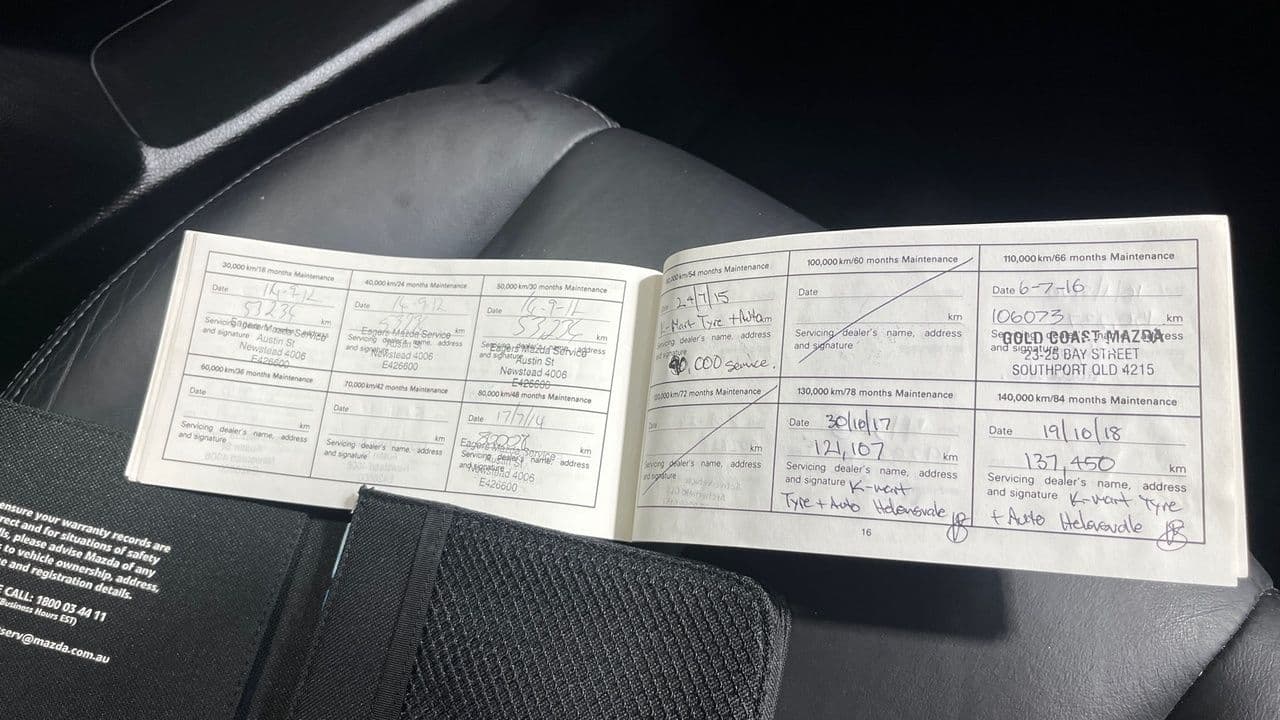 30,000 km/18 months Maintenance
Date 14-9-12
km
Servicing dealer's name, address
and signature
Eagers Mazda Service
Austin St
Newstead 4006
E426600
40,000 km/24 months Maintenance
Date 14-9-12
km
Servicing dealer's name, address
and signature
Eagers Mazda Service
Austin St
Newstead 4006
E426600
50,000 km/30 months Maintenance
Date 14-9-12
km
Servicing dealer's name, address
and signature
Eagers Mazda Service
Austin St
Newstead 4006
E426600
60,000 km/36 months Maintenance
Date
km
Servicing dealer's name, address
and signature
70,000 km/42 months Maintenance
Date
km
Servicing dealer's name, address
and signature
80,000 km/48 months Maintenance
Date 17/7/14
km
Servicing dealer's name, address
and signature
Eagers Mazda Service
Austin St
Newstead 4006
E426600
km/54 months Maintenance
24/7/15
Mart Tyre + Auto
km
servicing dealer's name, address
and signature
90,000 service.
100,000 km/60 months Maintenance
Date
km
Servicing dealer's name, address
and signature
110,000 km/66 months Maintenance
Date 6-7-16
106073 km
Servicing dealer's name, address
and signature
GOLD COAST MAZDA
23-25 BAY STREET
SOUTHPORT QLD 4215
km/72 months Maintenance
Date
km
Servicing dealer's name, address
and signature
130,000 km/78 months Maintenance
Date 30/10/17
121,107 km
Servicing dealer's name, address
and signature K-mart
Tyre + Auto Helensvale
140,000 km/84 months Maintenance
Date 19/10/18
137,450 km
Servicing dealer's name, address
and signature K-mart Tyre
+ Auto Helensvale
16
ensure your warranty records are
rect and for situations of safety
lls, please advise Mazda of any
s to vehicle ownership, address,
e and registration details.
E CALL: 1800 03 44 11
Business Hours EST)
serv@mazda.com.au